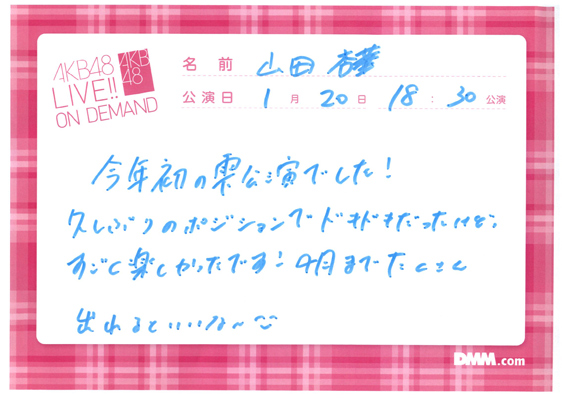 AKB48
LIVE!!
ON DEMAND
AKB
48
名前 山田 杏華
公演日 1月20日 18:30公演
今年初の雫公演でした!
久しぶりのポジションでドキドキだったけど、
すごく楽しかったです! 4月までたくさん
出れるといいな〜
DMM.com